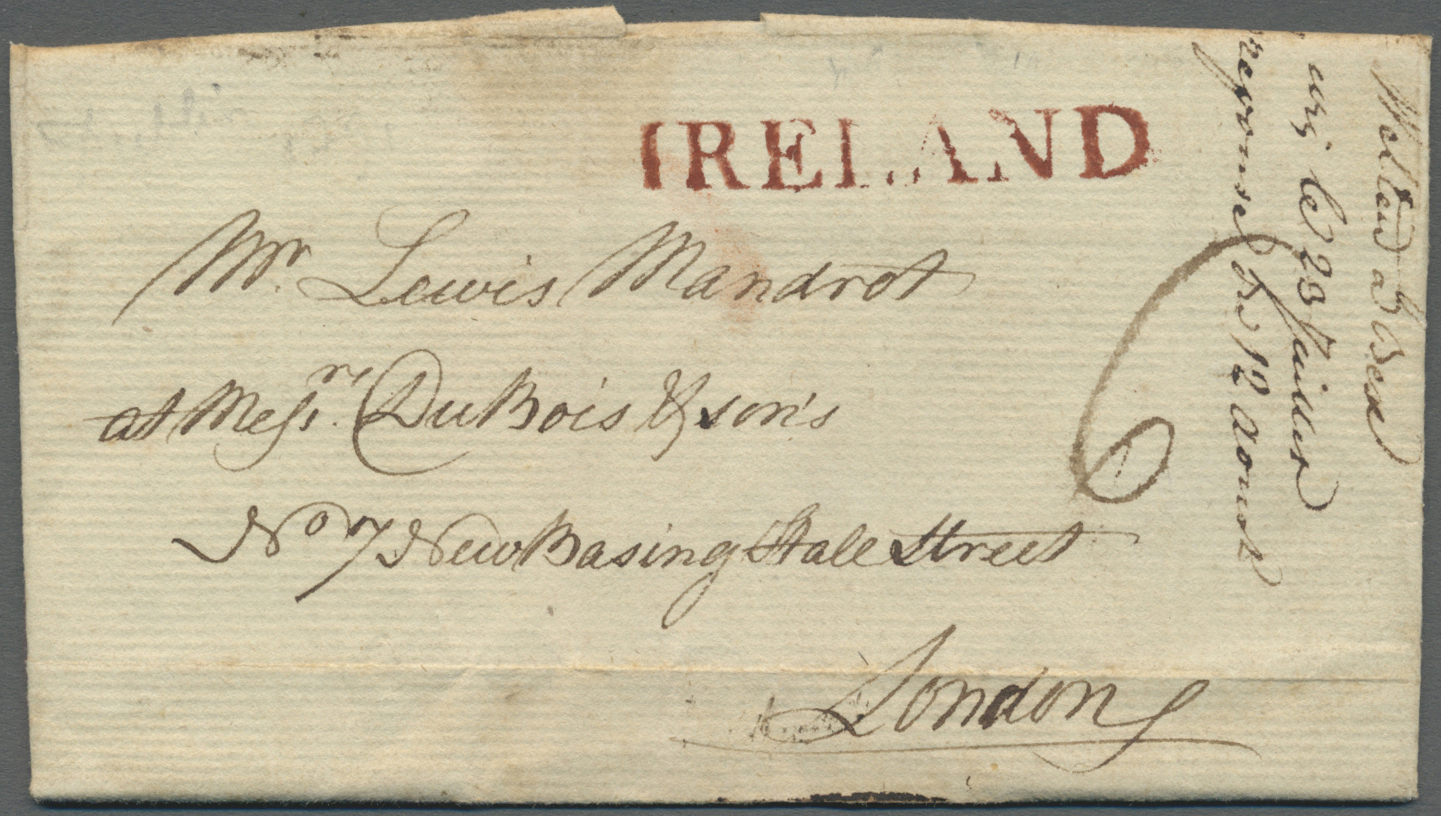 IRELAND
Mr. Lewis Mandrot
at Messrs. DuBois & son's
No 7 New Basing Hale Street
London
6
le 23 Juillet
reponse du 12 Aoust